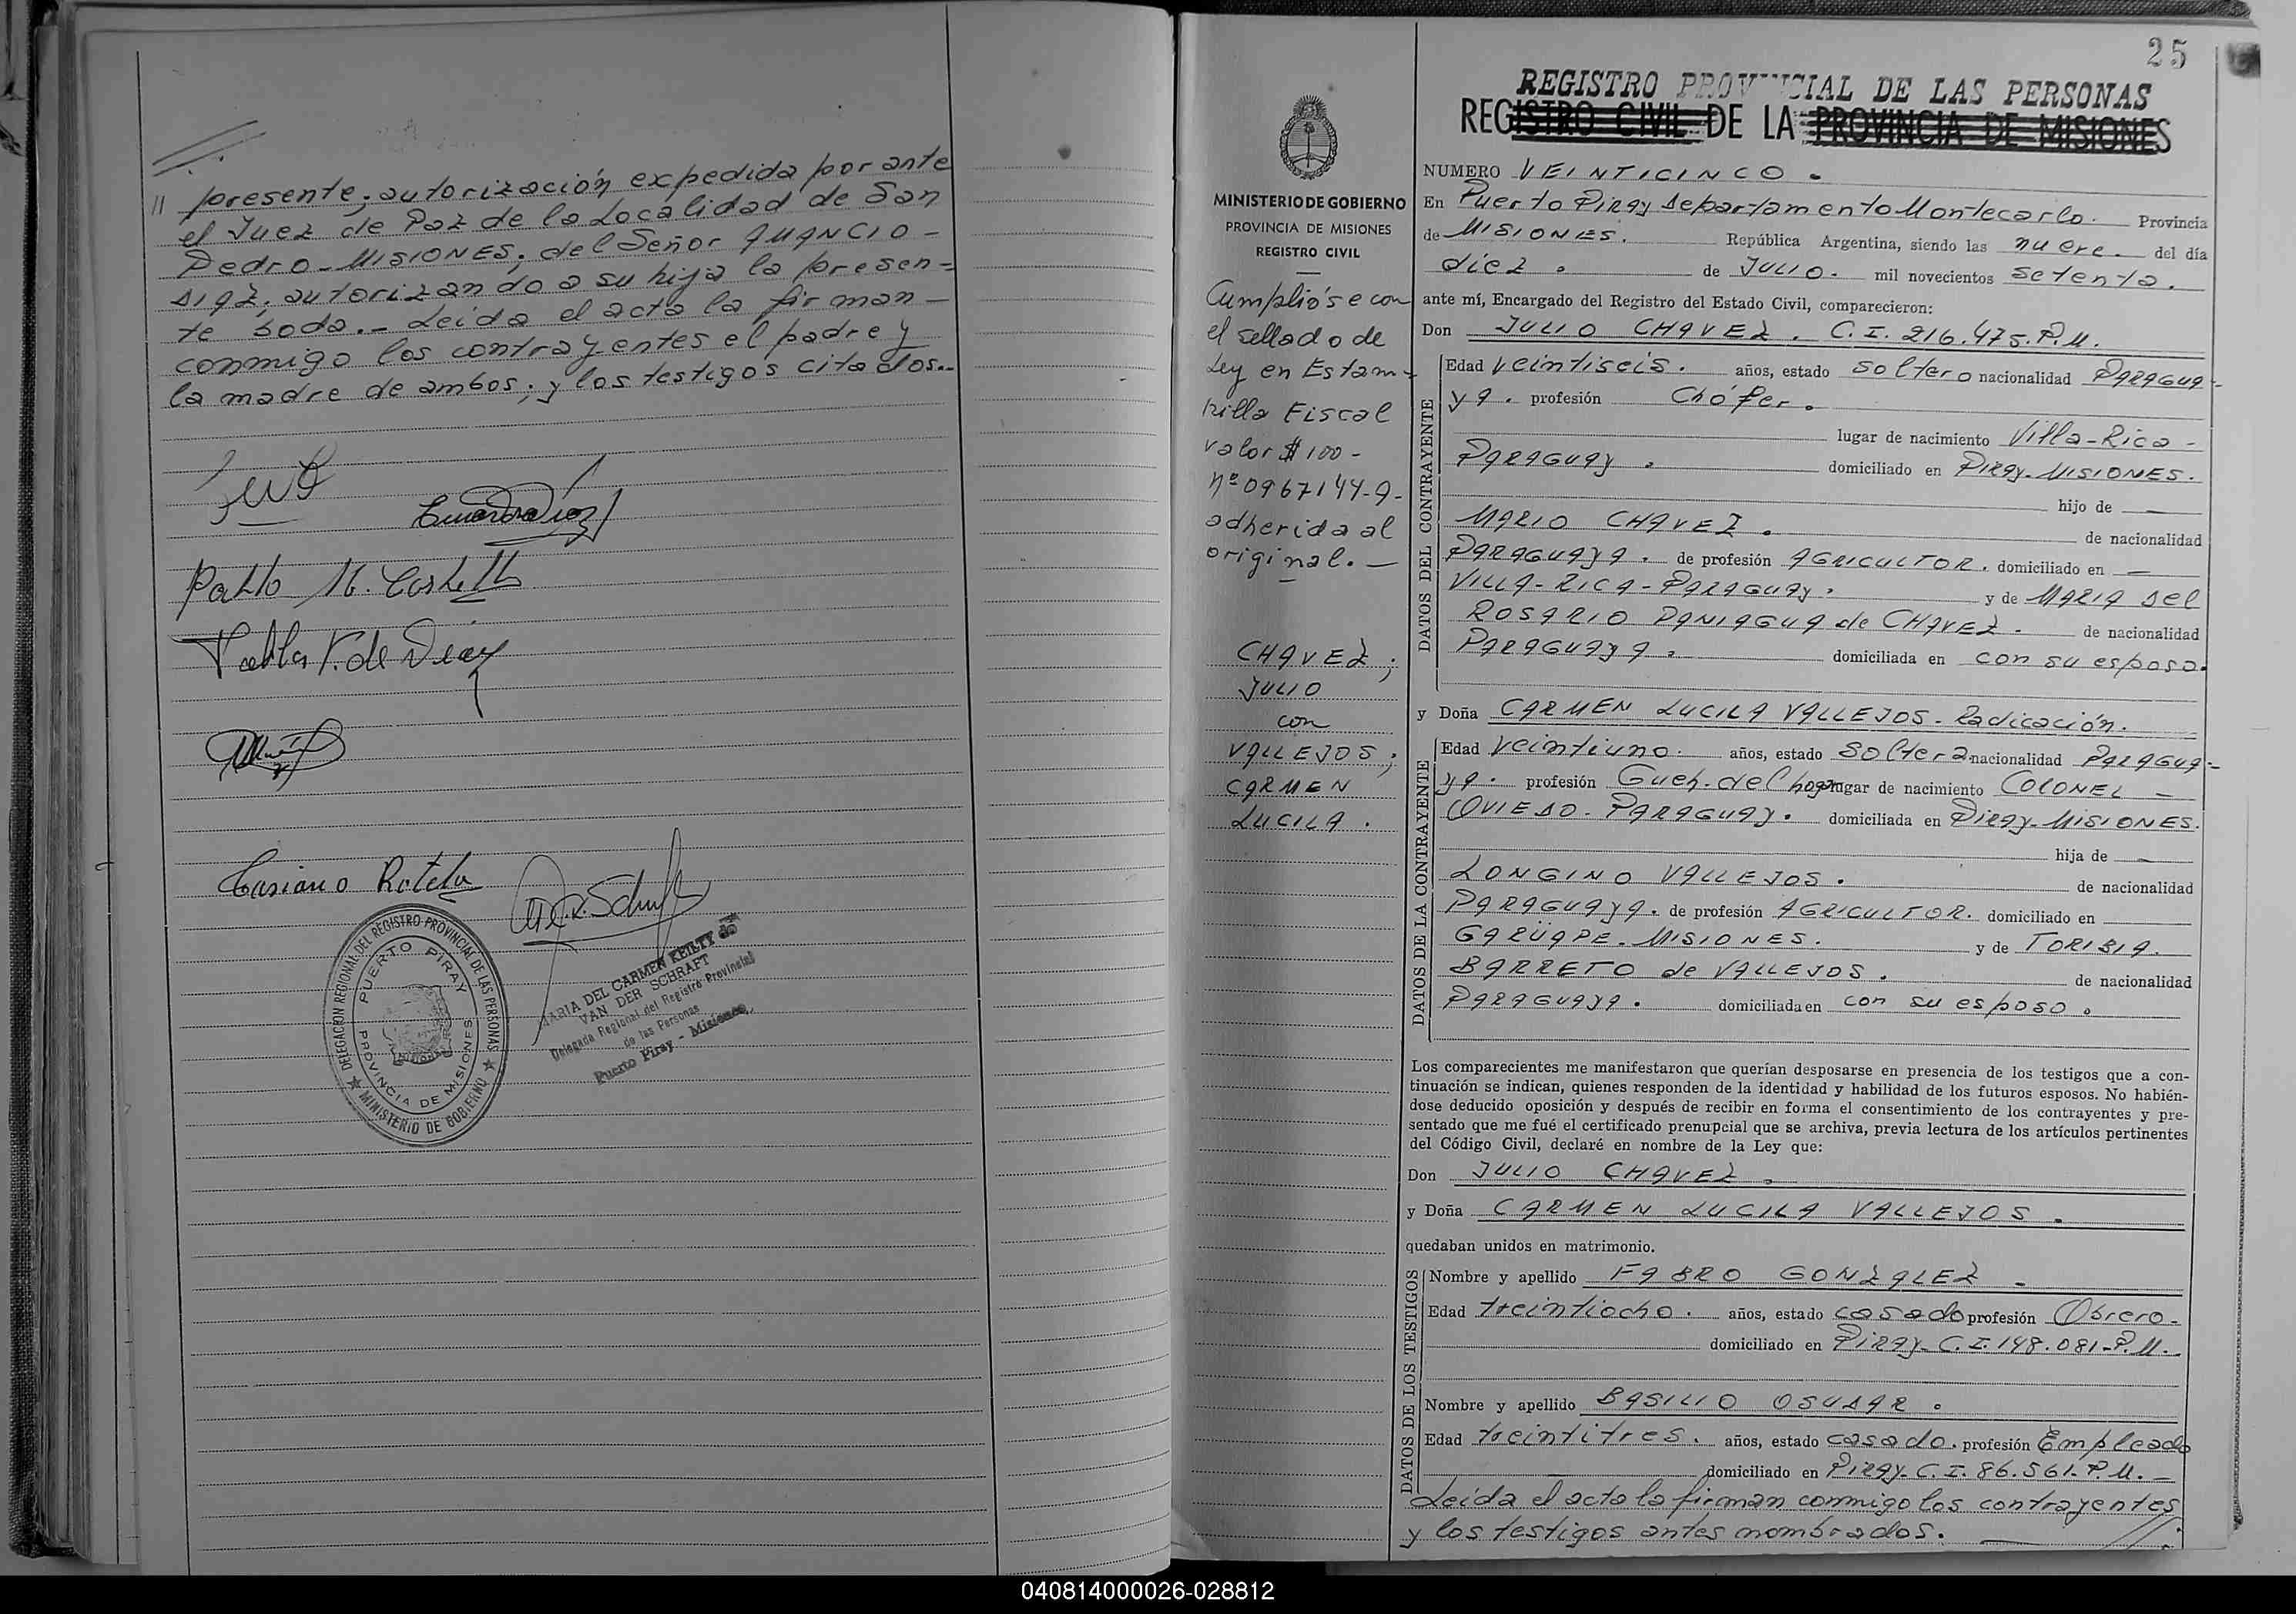 // presente; autorización expedida por ante
el Juez de Paz de la Localidad de San
Pedro - MISIONES; del Señor AMANCIO -
DIAZ, autorizando a su hija la presen-
te boda.- Leida el acta la firman -
conmigo los contrayentes el padre y
la madre de ambos; y los testigos citados.-
Casiano Rotela
DELEGACION REGIONAL DEL REGISTRO PROVINCIAL DE LAS PERSONAS
★ MINISTERIO DE GOBIERNO ★
PUERTO PIRAY
PROVINCIA DE MISIONES
MARIA DEL CARMEN KEILTY de
VAN DER SCHRAFT
Delegada Regional del Registro Provincial
de las Personas
Puerto Piray - Misiones
25
REGISTRO PROVINCIAL DE LAS PERSONAS
REGISTRO CIVIL DE LA PROVINCIA DE MISIONES
MINISTERIO DE GOBIERNO
PROVINCIA DE MISIONES
REGISTRO CIVIL
Cumplióse con
el sellado de
Ley en Estam-
pilla Fiscal
valor $ 100 -
nº 0967144-9-
adherida al
original. -
CHAVEZ;
JULIO
con
VALLEJOS;
CARMEN
LUCILA.
NUMERO VEINTICINCO.
En Puerto Piray Departamento Montecarlo. Provincia
de MISIONES. República Argentina, siendo las nueve. del día
diez. de JULIO. mil novecientos setenta.
ante mí, Encargado del Registro del Estado Civil, comparecieron:
Don JULIO CHAVEZ. C.I. 216.475.P.M.
DATOS DEL CONTRAYENTE
Edad veintiseis. años, estado soltero nacionalidad PARAGUA-
YA. profesión Chófer.
lugar de nacimiento Villa-Rica -
PARAGUAY. domiciliado en PIRAY-MISIONES.
hijo de
MARIO CHAVEZ. de nacionalidad
PARAGUAYA. de profesión AGRICULTOR. domiciliado en
VILLA-RICA-PARAGUAY. y de MARIA DEL
ROSARIO PANIAGUA de CHAVEZ. de nacionalidad
PARAGUAYA. domiciliada en con su esposo.
y Doña CARMEN LUCILA VALLEJOS. Radicación.
DATOS DE LA CONTRAYENTE
Edad veintiuno. años, estado soltera nacionalidad PARAGUA-
YA. profesión Queh. del hogar lugar de nacimiento CORONEL -
OVIEDO-PARAGUAY. domiciliada en PIRAY-MISIONES.
hija de
LONGINO VALLEJOS. de nacionalidad
PARAGUAYA. de profesión AGRICULTOR. domiciliado en
GARUAPE-MISIONES. y de TORIBIA.
BARRETO de VALLEJOS. de nacionalidad
PARAGUAYA. domiciliada en con su esposo.
Los comparecientes me manifestaron que querían desposarse en presencia de los testigos que a con-
tinuación se indican, quienes responden de la identidad y habilidad de los futuros esposos. No habién-
dose deducido oposición y después de recibir en forma el consentimiento de los contrayentes y pre-
sentado que me fué el certificado prenupcial que se archiva, previa lectura de los artículos pertinentes
del Código Civil, declaré en nombre de la Ley que:
Don JULIO CHAVEZ.
y Doña CARMEN LUCILA VALLEJOS.
quedaban unidos en matrimonio.
DATOS DE LOS TESTIGOS
Nombre y apellido FABRO GONZALEZ.
Edad treintiocho. años, estado casado profesión Obrero-
domiciliado en PIRAY-C.I.148.081-P.M.
Nombre y apellido BASILIO OSUDAR.
Edad treintitres. años, estado casado. profesión Empleado
domiciliado en PIRAY-C.I.86.561-P.M.-
Leida el acta la firman conmigo los contrayentes
y los testigos antes nombrados. //.
040814000026-028812